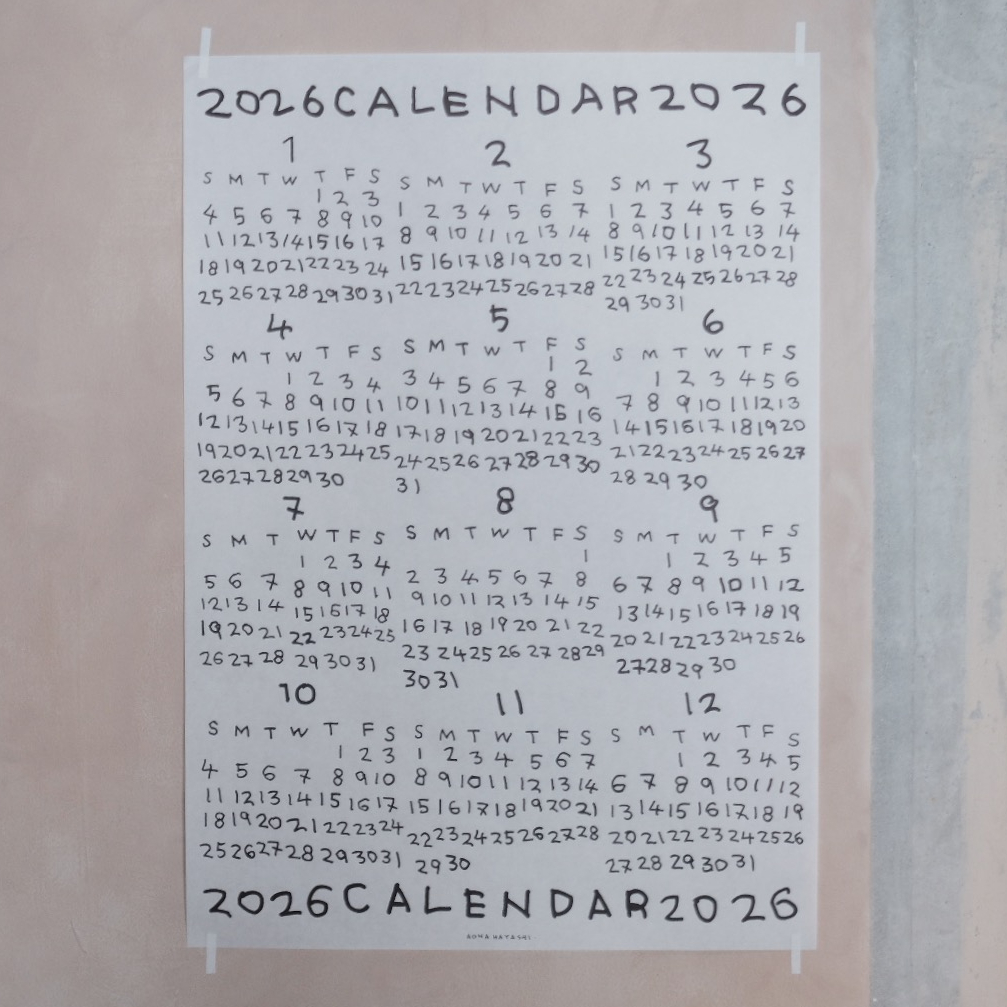 2026 CALENDAR 2026
1
S M T W T F S
1 2 3
4 5 6 7 8 9 10
11 12 13 14 15 16 17
18 19 20 21 22 23 24
25 26 27 28 29 30 31
2
S M T W T F S
1 2 3 4 5 6 7
8 9 10 11 12 13 14
15 16 17 18 19 20 21
22 23 24 25 26 27 28
3
S M T W T F S
1 2 3 4 5 6 7
8 9 10 11 12 13 14
15 16 17 18 19 20 21
22 23 24 25 26 27 28
29 30 31
4
S M T W T F S
1 2 3 4
5 6 7 8 9 10 11
12 13 14 15 16 17 18
19 20 21 22 23 24 25
26 27 28 29 30
5
S M T W T F S
1 2
3 4 5 6 7 8 9
10 11 12 13 14 15 16
17 18 19 20 21 22 23
24 25 26 27 28 29 30
31
6
S M T W T F S
1 2 3 4 5 6
7 8 9 10 11 12 13
14 15 16 17 18 19 20
21 22 23 24 25 26 27
28 29 30
7
S M T W T F S
1 2 3 4
5 6 7 8 9 10 11
12 13 14 15 16 17 18
19 20 21 22 23 24 25
26 27 28 29 30 31
8
S M T W T F S
1
2 3 4 5 6 7 8
9 10 11 12 13 14 15
16 17 18 19 20 21 22
23 24 25 26 27 28 29
30 31
9
S M T W T F S
1 2 3 4 5
6 7 8 9 10 11 12
13 14 15 16 17 18 19
20 21 22 23 24 25 26
27 28 29 30
10
S M T W T F S
1 2 3
4 5 6 7 8 9 10
11 12 13 14 15 16 17
18 19 20 21 22 23 24
25 26 27 28 29 30 31
11
S M T W T F S
1 2 3 4 5 6 7
8 9 10 11 12 13 14
15 16 17 18 19 20 21
22 23 24 25 26 27 28
29 30
12
S M T W T F S
1 2 3 4 5
6 7 8 9 10 11 12
13 14 15 16 17 18 19
20 21 22 23 24 25 26
27 28 29 30 31
2026 CALENDAR 2026
HAYASHI